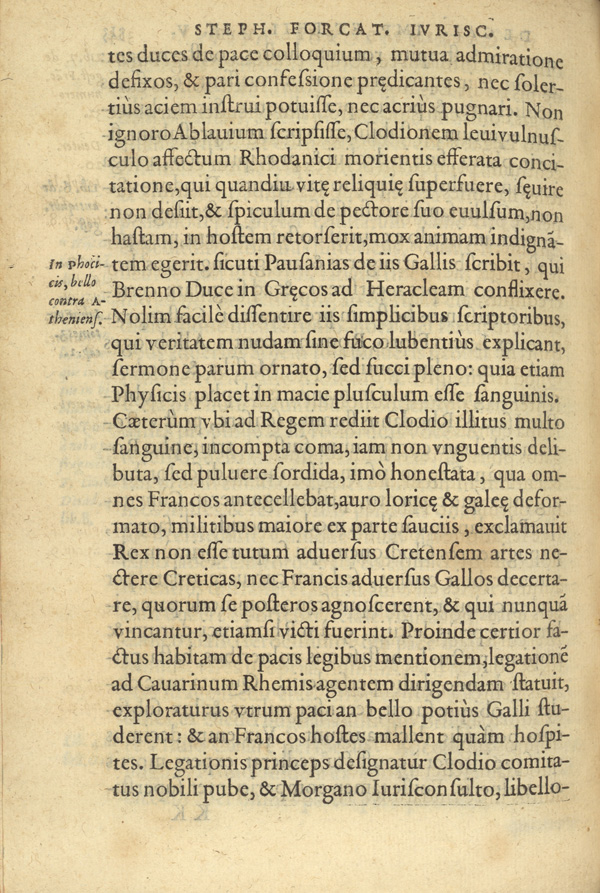 STEPH. FORCAT. IVRISC.
tes duces de pace colloquium, mutua admiratione
defixos, & pari confeſsione prędicantes, nec ſoler-
tiùs aciem inſtrui potuiſſe, nec acriùs pugnari. Non
ignoro Ablauium ſcripſiſſe, Clodionem leui vulnuſ-
culo affectum Rhodanici morientis efferata conci-
tatione, qui quandiu vitę reliquię ſuperfuere, ſęuire
non deſiit, & ſpiculum de pectore ſuo euulſum, non
haſtam, in hoſtem retorſerit, mox animam indignã-
tem egerit. ſicuti Pauſanias de iis Gallis ſcribit, qui
In phoci-
cis, bello
contra A-
thenienſ.
Brenno Duce in Gręcos ad Heracleam conflixere.
Nolim facilè diſſentire iis ſimplicibus ſcriptoribus,
qui veritatem nudam ſine fuco lubentiùs explicant,
ſermone parum ornato, ſed ſucci pleno: quia etiam
Phyſicis placet in macie pluſculum eſſe ſanguinis.
Cæterùm vbi ad Regem rediit Clodio illitus multo
ſanguine, incompta coma, iam non vnguentis deli-
buta, ſed puluere ſordida, imò honeſtata, qua om-
nes Francos antecellebat, auro loricę & galeę defor-
mato, militibus maiore ex parte ſauciis, exclamauit
Rex non eſſe tutum aduerſus Cretenſem artes ne-
ctere Creticas, nec Francis aduerſus Gallos decerta-
re, quorum ſe poſteros agnoſcerent, & qui nunquã
vincantur, etiamſi victi fuerint. Proinde certior fa-
ctus habitam de pacis legibus mentionem, legationẽ
ad Cauarinum Rhemis agentem dirigendam ſtatuit,
exploraturus vtrum paci an bello potiùs Galli ſtu-
derent: & an Francos hoſtes mallent quàm hoſpi-
tes. Legationis princeps deſignatur Clodio comita-
tus nobili pube, & Morgano Iuriſconſulto, libello-